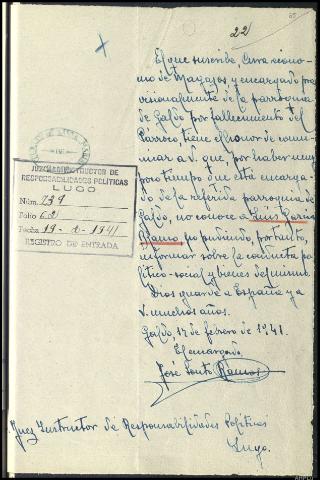 22
El que suscribe, Cura ecóno-
mo de Magazos y encargado pro
visionalmente de la parroquia
de Galdo por fallecimiento del
Párroco, tiene el honor de comu-
nicar a V. que, por haber muy
poco tiempo que está encarga-
do de la referida parroquia de
Galdo, no conoce a Luis García
Ramo no pudiendo, por tanto,
informar sobre la conducta
político-social y bienes del mismo.
Dios guarde a España y a
V. muchos años.
Galdo, 17 de febrero de 1941.
El encargado
José Souto Ramos
JUZGADO INSTRUCTOR DE
RESPONSABILIDADES POLITICAS
LUGO
Núm. 739
Folio
Fecha 19-2-1941
REGISTRO DE ENTRADA
Juez Instructor de Responsabilidades Políticas
Lugo.